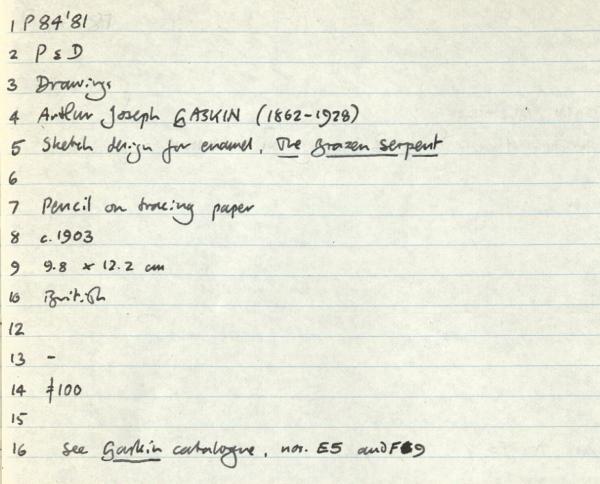 1 P84'81
2 P & D
3 Drawings
4 Arthur Joseph GASKIN (1862-1928)
5 Sketch design for enamel, The Brazen Serpent
6
7 Pencil on tracing paper
8 c.1903
9 9.8 x 12.2 cm
10 British
12
13 -
14 £100
15
16 See Gaskin catalogue, nos. E5 and F9